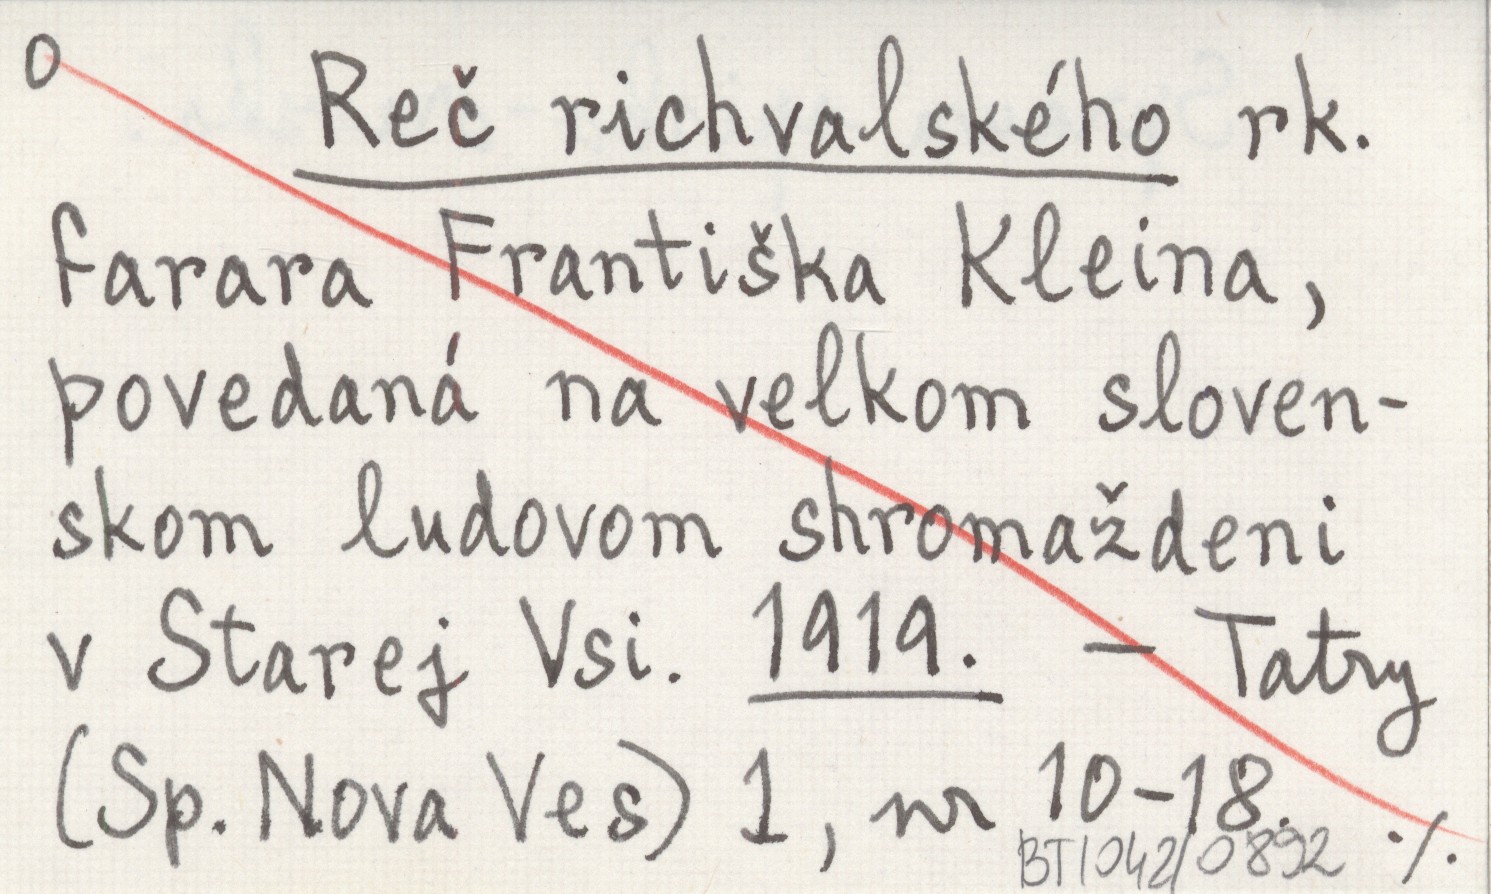 O Reč richvalského rk.
farara Františka Kleina,
povedaná na velkom sloven-
skom ludovom shromaždeni
v Starej Vsi. 1919. – Tatry
(Sp. Nova Ves) 1, nr 10-18. ./.
BT1042/0892